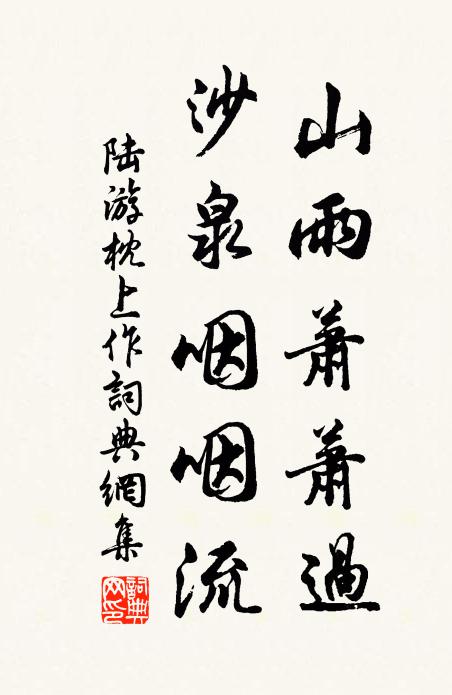 山雨蕭蕭過
沙泉咽咽流
陸游枕上作詞典網集
詞典網印